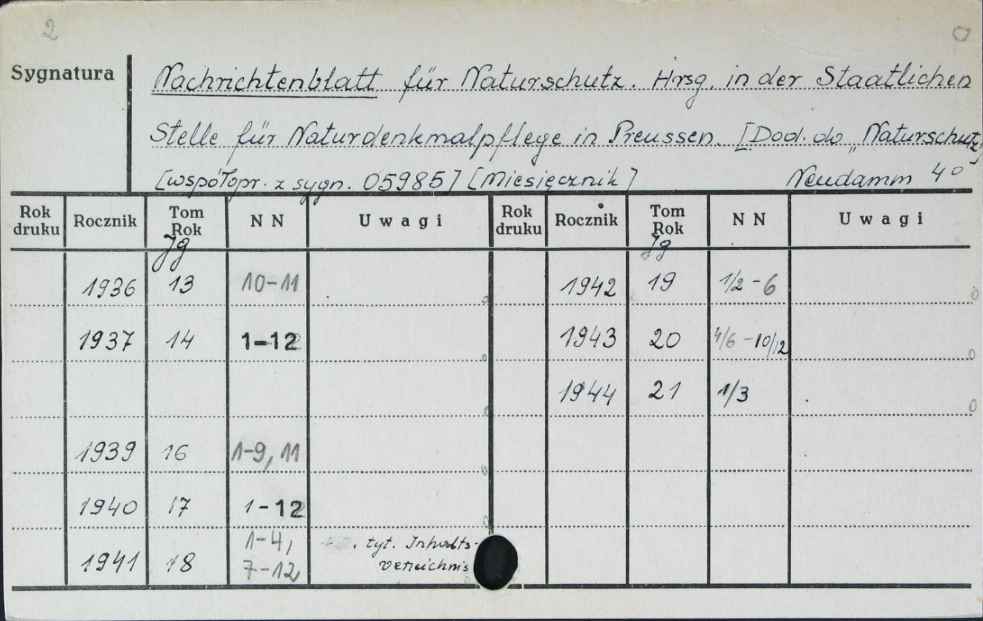 2
Sygnatura
Nachrichtenblatt für Naturschutz. Hrsg. in der Staatlichen
Stelle für Naturdenkmalpflege in Preussen. [Dod. do „Naturschutz"
[współopr. z sygn. 05985] [Miesięcznik] Neudamm 4°
Rok druku Rocznik Tom Rok Jg NN Uwagi Rok druku Rocznik Tom Rok Jg NN Uwagi
1936 13 10-11 1942 19 1/2-6
1937 14 1-12 1943 20 4/6-10/12
1944 21 1/3
1939 16 1-9, 11
1940 17 1-12
1941 18 1-4, 7-12 tyt. Inhalts-
verzeichnis